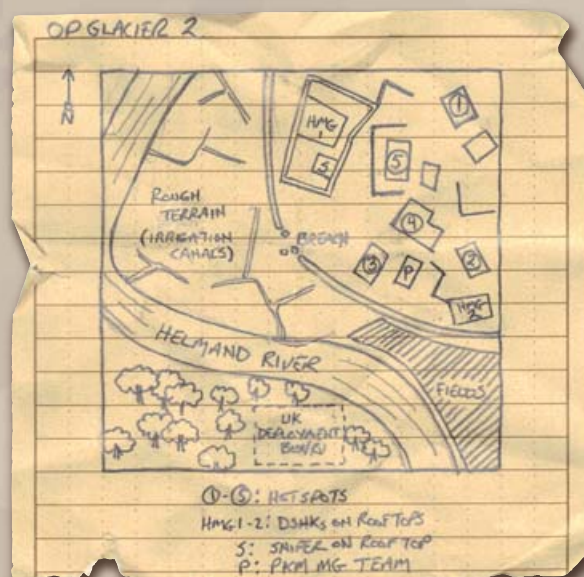 OP GLACIER 2
N
HMG
1
S
1
5
4
3
P
2
HMG
2
ROUGH
TERRAIN
(IRRIGATION
CANALS)
BREACH
HELMAND RIVER
FIELDS
UK
DEPLOYMENT
BOX/RV
①-⑤: HOTSPOTS
HMG1-2: DSHKs ON ROOFTOPS
S: SNIPER ON ROOFTOP
P: PKM MG TEAM